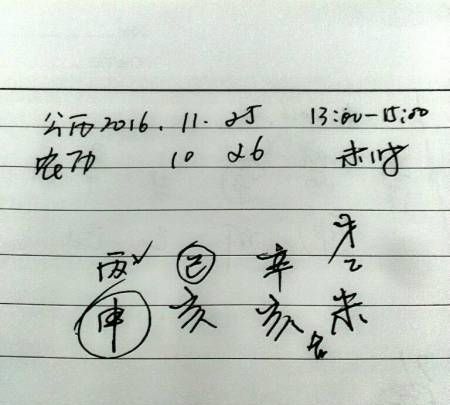 公历2016.11.25 13:00-15:00
农历 10 26 未时
丙 己 辛 乙
申 亥 亥 未